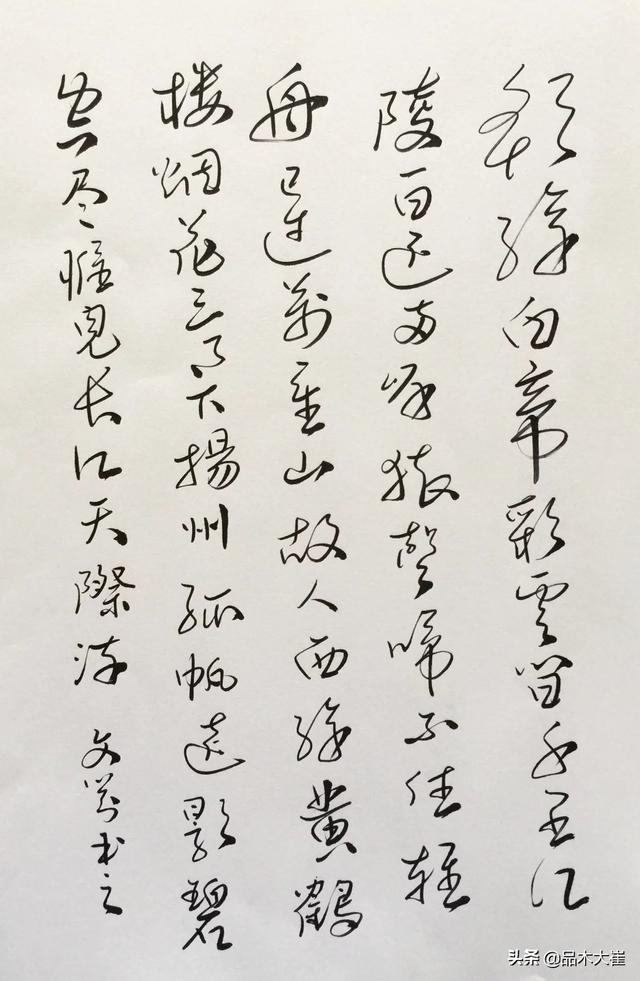 朝辞白帝彩雲间千里江
陵一日还两岸猿聲啼不住轻
舟已过萬重山故人西辞黄鶴
楼烟花三月下揚州孤帆遠影碧
空尽惟見长江天際流 文书之
头条 @品木大崔